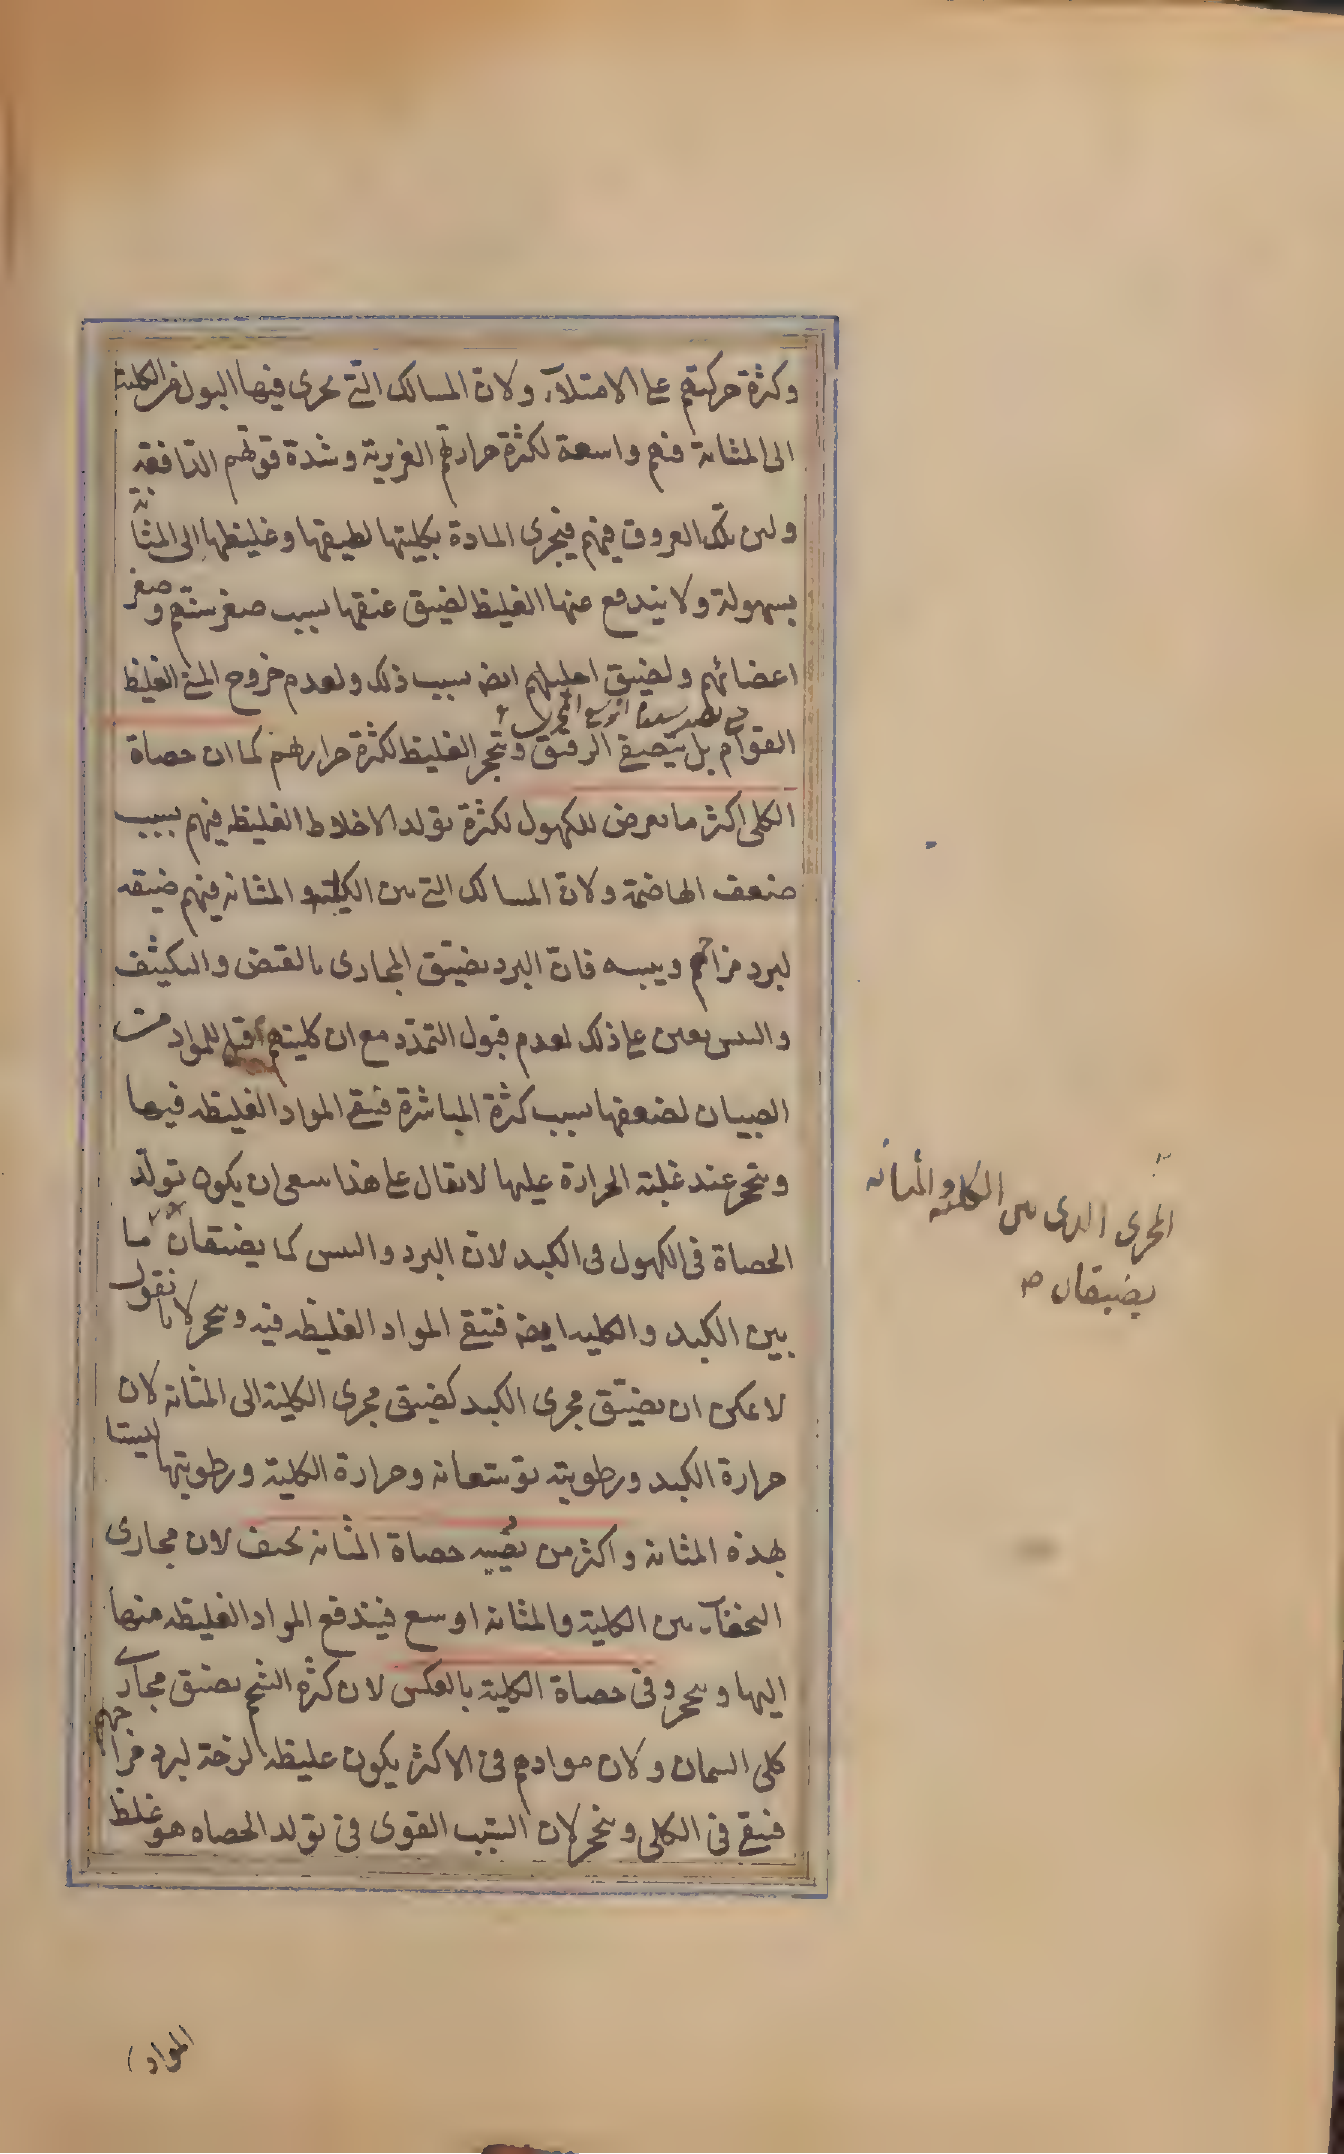 وكثرة حركتهم على الامتلاء ولان المسالك التي يجرى فيها البول من الكلية
الى المثانة فيهم واسعة لكثرة حرارتهم الغريزية وشدة قوتهم الدافعة
ولين تلك العروق فيهم فيجرى المادة بكليتها لطيفها وغليظها الى المثانة
بسهولة ولا يندفع منها الغليظ لضيق عنقها بسبب صغر سنهم وصغر
اعضائهم ولضيق احليلهم ايضا بسبب ذلك ولعدم خروج المنى الغليظ
القوام بل الرقيق ويتحجر الغليظ لكثرة حرارتهم كما ان حصاة
الكلى اكثر ما يعرض للكهول لكثرة تولد الاخلاط الغليظه فيهم بسبب
ضعف الهاضمة ولان المسالك التي بين الكلية والمثانه فيهم ضيقه
لبرد مزاجهم ويبسه فان البرد يضيق المجارى بالقبض والتكثيف
واليبس يعين على ذلك لعدم قبول التمدد مع ان كليتهم اقبل للمواد من
الصبيان لضعفها بسبب كثرة المباشرة فيبقى المواد الغليظه فيها
ويتحجر عند غلبة الحرارة عليها لا يقال على هذا ينبغى ان يكون تولد
الحصاة فى الكهول فى الكبد لان البرد واليبس كما يضيقان ما
بين الكبد والكليه ايضا فتبقى المواد الغليظه فيه ويتحجر لانا نقول
لا يمكن ان يضيق مجرى الكبد كضيق مجرى الكلية الى المثانه لان
حرارة الكبد ورطوبته توسعانه وحرارة الكلية ورطوبتها ليستا
بهذه المثابه واكثر من تصيبه حصاة المثانه نحيف لان مجارى
النحفاء بين الكلية والمثانه اوسع فيندفع المواد الغليظه منها
اليها ويتحجر وفى حصاة الكلية بالعكس لان كثرة الشحم يضيق مجارى
كلى السمان ولان موادهم فى الاكثر يكون غليظه لزجة لبرد مزاجهم
فيبقى فى الكلى ويتحجر لان السبب القوى فى تولد الحصاه هو غلظ
المجرى الذى بين الكلية والمثانه
يضيقان ص
المواد